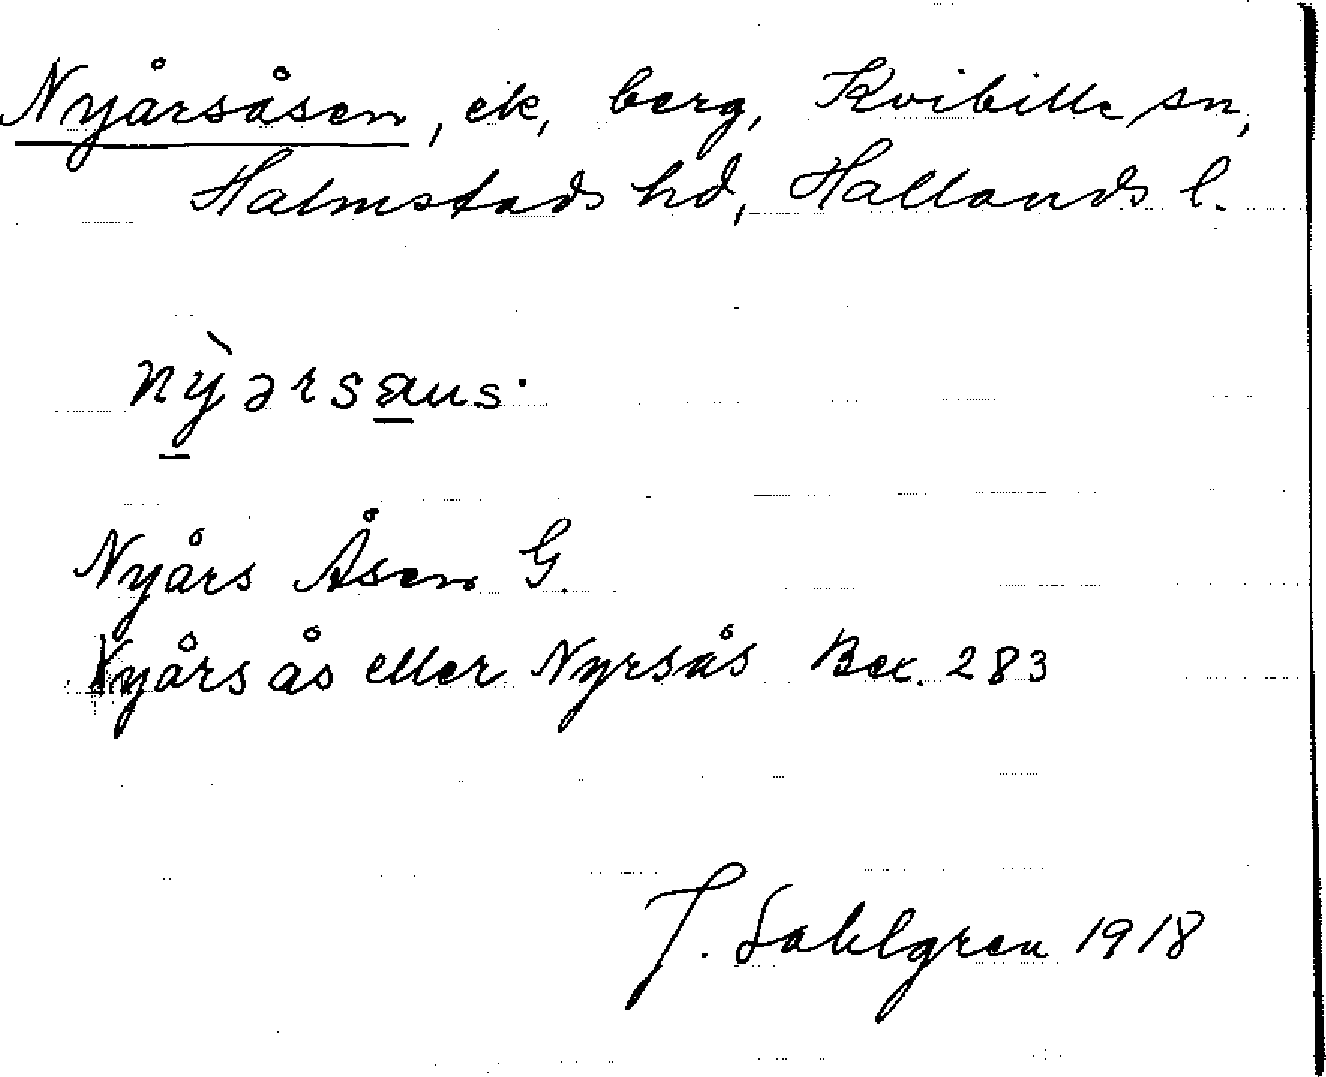 Nyårsåsen, ek, berg, Kvibille sn,
Halmstads hd, Hallands l.
Nyårs Åsen G.
Nyårs ås eller Nyrsås Bex. 283
J. Sahlgren 1918